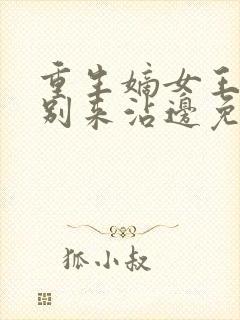 重生嫡女王
别来沾邊免
狐小叔